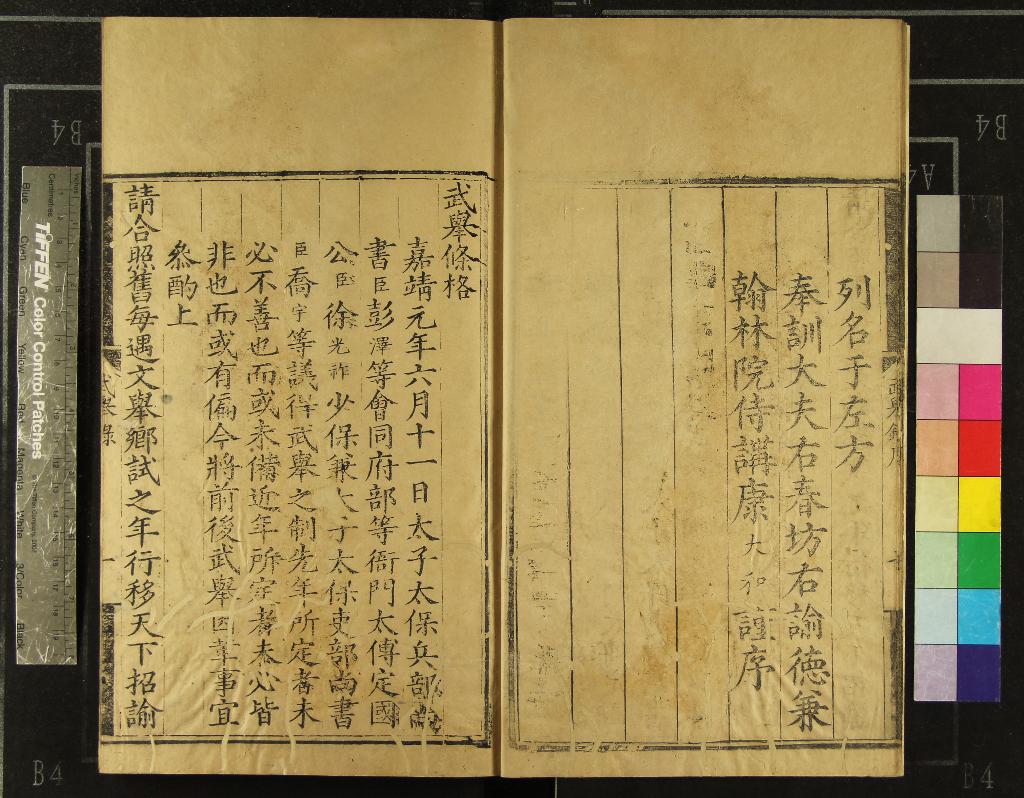 列名于左方
奉訓大夫右春坊右諭德兼
翰林院侍講康大和謹序
武舉條格
嘉靖元年六月十一日太子太保兵部尚
書臣彭澤等會同府部等衙門太傅定國
公臣徐光祚少保兼太子太保吏部尚書
臣喬宇等議得武舉之制先年所定者未
必不善也而或未備近年所定者未必皆
非也而或有偏今將前後武舉四事宜
叅酌上
請合照舊每遇文舉鄉試之年行移天下招諭
武舉錄
一
B4
B4
A4
B4
B4
TIFFEN Color Control Patches
Blue
Cyan
Green
Yellow
Red
Magenta
White
3/Color
Black
Centimetres
Inches